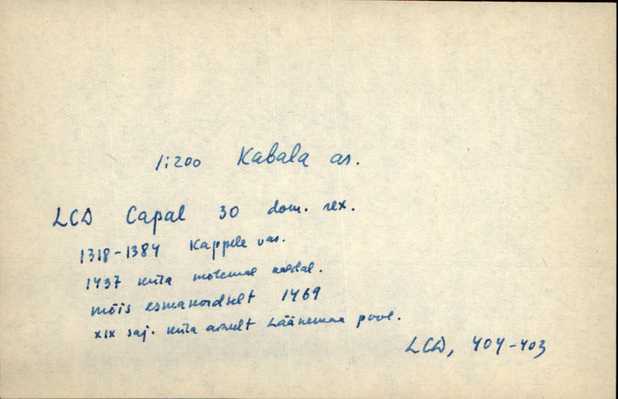 1:200 Kabala as.
LCD Capal 30 dom. rex.
1318-1384 Kappele vas.
1437 küla mõlemal kaldal.
mõis esmakordselt 1469
XIX saj. küla ainult Läänemaa pool.
LCD, 404-403